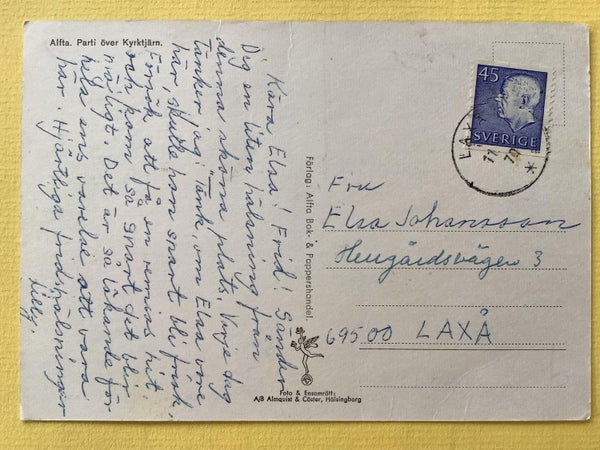 Alfta. Parti över Kyrktjärn.
Kära Elsa! Frid! Sänder
Dig en liten hälsning från
denna sköna plats. Varje dag
tänker jag: "Tänk, om Elsa vore
här, skulle hon snart bli frisk."
Försök att få en remiss hit
och kom så snart det blir
möjligt. Det är så läkande för
hela ens varelse att vara
här. Hjärtliga fridshälsningar
Lilly.
Förlag: Alfta Bok- & Pappershandel.
Foto & Ensamrätt:
A/B Almquist & Cöster, Hälsingborg
45
SVERIGE
LAX
Fru
Elsa Johansson
Hengårdsvägen 3
69500 LAXÅ